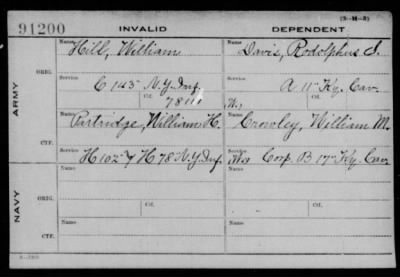 (3-14-2)
91200 INVALID DEPENDENT
ARMY
ORIG.
Name Hill, William
Name Davis, Rodolphus S.
Service C 145 N.Y. Inf.
Service A 11" Ky. Cav.
Ctf.
Ctf.
CTF.
Name Partridge, William H.
Name Crowley, William M.
Service H 102 & H 78 N.Y. Inf.
Service Corp. B 17" Ky. Cav.
NAVY
ORIG.
Name
Name
Ctf.
Ctf.
CTF.
Name
Name